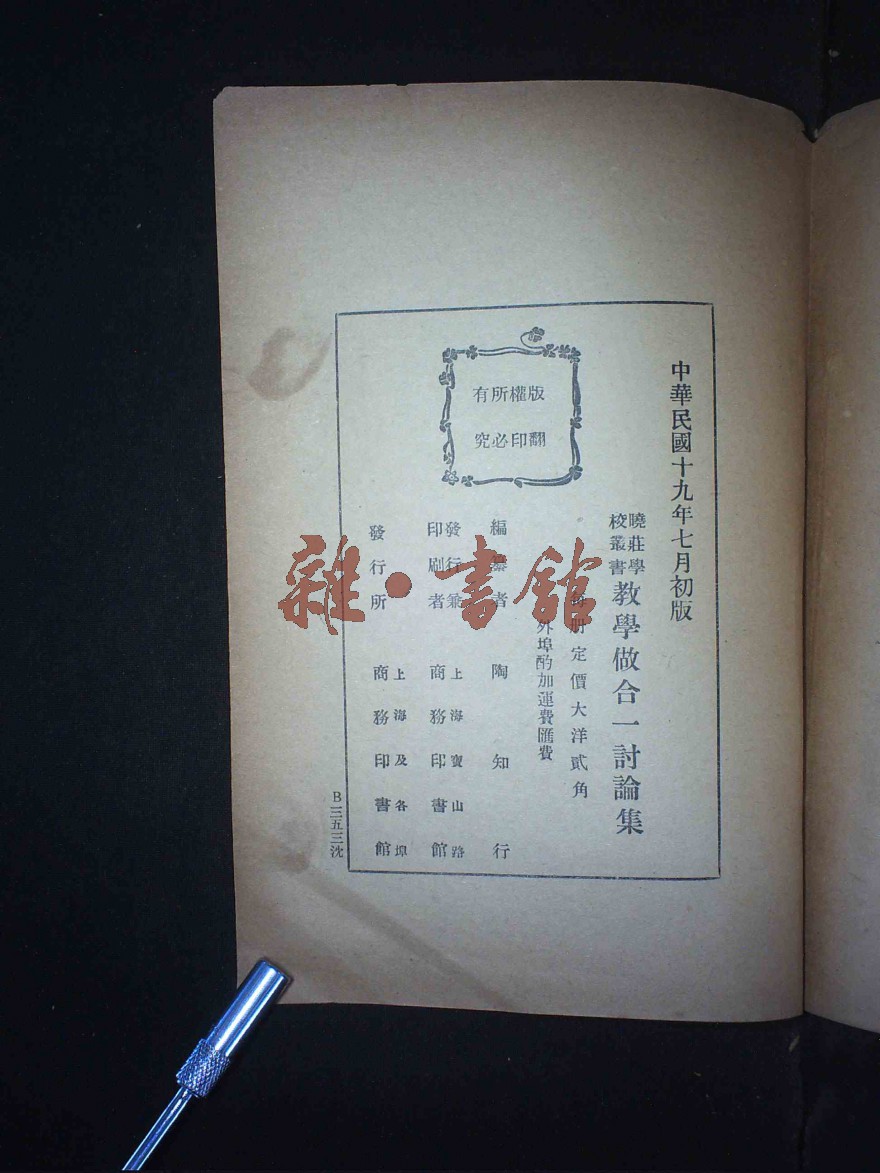 中華民國十九年七月初版
曉莊學
校叢書
教學做合一討論集
每册定價大洋貳角
外埠酌加運費匯費
版權所有
翻印必究
編纂者 陶知行
發行兼
印刷者
上海寶山路
商務印書館
發行所
上海及各埠
商務印書館
B三五三沈
雜·書館